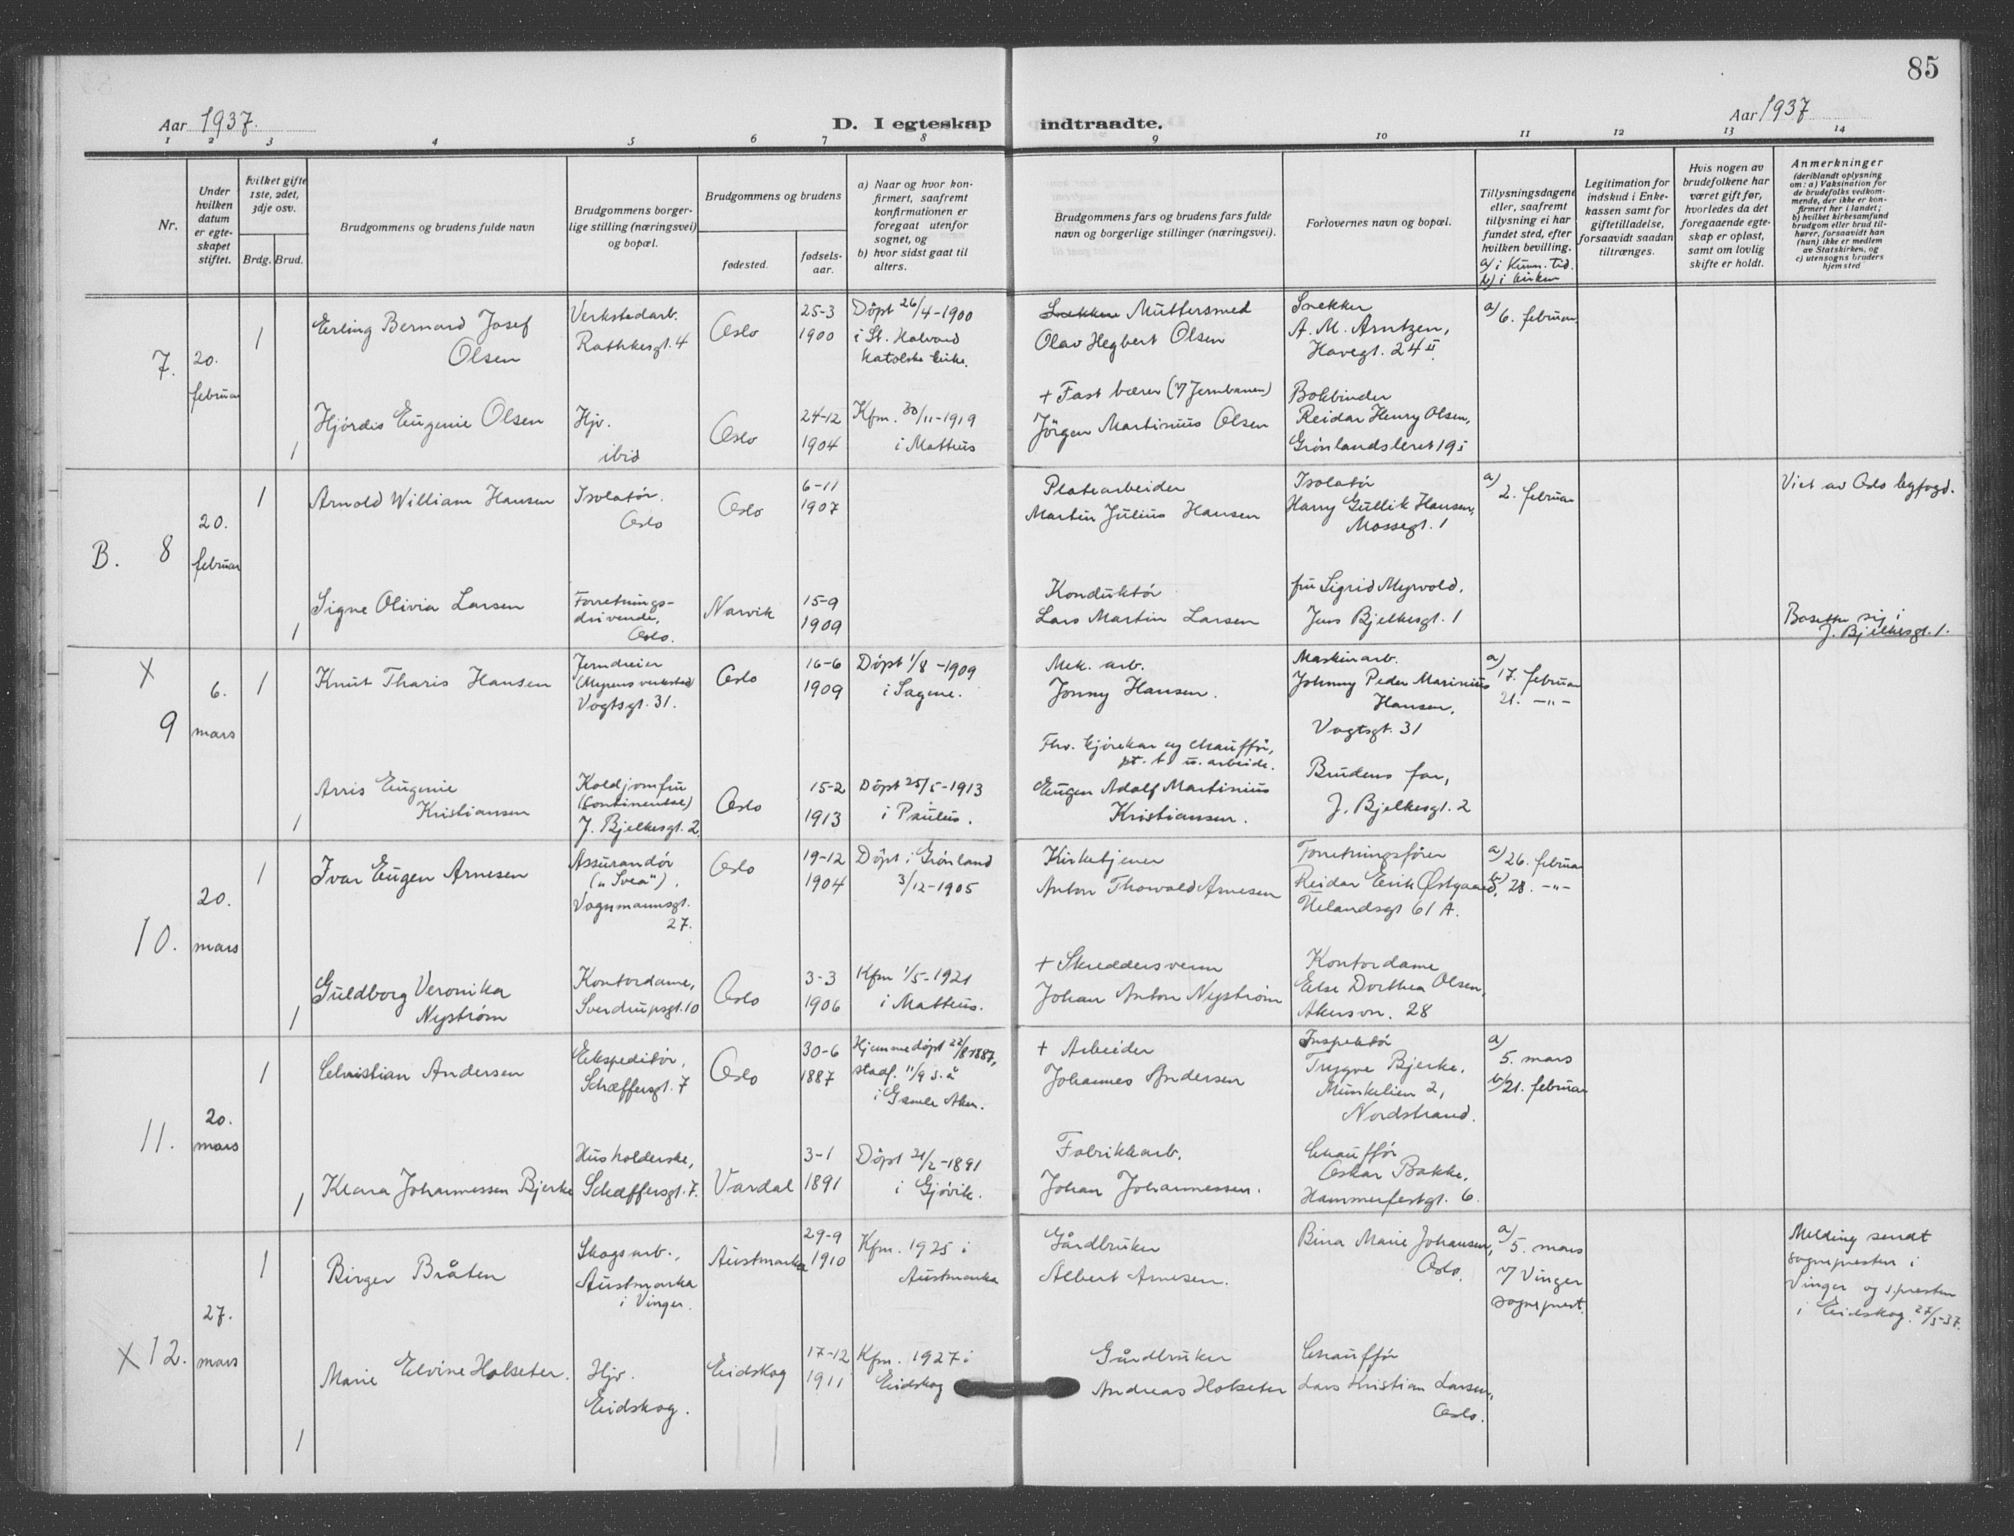 85
Aar 1937.
D. I egteskap indtraadte.
Aar 1937
1 2 3 4 5 6 7 8 9 10 11 12 13 14
Nr.
Under hvilken datum er egteskapet stiftet.
Hvilket gifte 1ste, 2det, 3dje osv.
Brdg. Brud.
Brudgommens og brudens fulde navn
Brudgommens borgerlige stilling (næringsvei) og bopæl.
Brudgommens og brudens
fødested.
fødselsaar.
a) Naar og hvor konfirmert, saafremt konfirmationen er foregaat utenfor sognet, og
b) hvor sidst gaat til alters.
Brudgommens fars og brudens fars fulde navn og borgerlige stillinger (næringsvei).
Forlovernes navn og bopæl.
Tillysningsdagene eller, saafremt tillysning ei har fundet sted, efter hvilken bevilling.
a) i Kunn. tid.
b) i kirken
Legitimation for indskud i Enkekassen samt for giftetilladelse, forsaavidt saadan tiltrænges.
Hvis nogen av brudefolkene har været gift før, hvorledes da det foregaaende egteskap er opløst, samt om lovlig skifte er holdt.
Anmerkninger
(deriblandt oplysning om: a) Vaksination for de brudefolks vedkommende, der ikke er konfirmert her i landet; b) hvilket kirkesamfund brudgom eller brud tilhører, forsaavidt han (hun) ikke er medlem av Statskirken, og c) utensogns bruders hjemsted
7.
20. februar
1
Erling Bernard Josef
Olsen
Verkstedarb.
Rathkesgt. 4
Oslo
25-3
1900
Döpt 26/4-1900
i St. Halvard
katolske kirke.
Muttersmed
Olav Hegbert Olsen
Snekker
A. M. Arntzen,
Havegt. 24 II
a) 6. februar.
1
Hjördis Eugenie Olsen
Hjv.
ibid
Oslo
24-12
1904
Kfm. 30/11-1919
i Matteus
+ Fast bærer (v/ Jernbanen)
Jörgen Martinius Olsen
Bokbinder
Reidar Henry Olsen,
Grønlandsleret 19 I
B. 8
20. februar
1
Arnold William Hansen
Isolatør.
Oslo
Oslo
6-11
1907
Platearbeider
Martin Julius Hansen
Isolatør
Harry Gullik Hansen,
Mossegt. 1
a) 2. februar
Viet av Oslo byfogd.
1
Signe Olivia Larsen
Forretningsdrivende,
Oslo.
Narvik
15-9
1909
Konduktör
Lars Martin Larsen
fru Sigrid Myrvold.
Jens Bjelkesgt. 1
Bosetter sig i
J. Bjelkesgt. 1.
X
9
6. mars
1
Knut Tharis Hansen
Jerndreier
(Myrens verksted)
Vogtsgt. 31.
Oslo
16-6
1909
Döpt 1/8-1909
i Sagene.
Mek. arb.
Jonny Hansen.
Maskinarb.
Johnny Peder Marinius
Hansen,
Vogtsgt. 31
a) 17. februar
21. -"-
1
Arris Eugenie
Kristiansen
Koldjomfru
(Continental)
J. Bjelkesgt. 2.
Oslo
15-2
1913
Döpt 25/5-1913
i Paulus.
Fhv. kjørekar og chauffør,
pt. t. u. arbeide.
Eugen Adolf Martinius
Kristiansen.
Brudens far,
J. Bjelkesgt. 2
10.
20. mars
1
Ivar Eugen Arnesen
Assurandör
("Svea").
Vognmannsgt.
27.
Oslo
19-12
1904
Döpt i Grönland
3/12-1905
Kirketjener
Anton Thorvald Arnesen
Forretningsfører
Reidar Erik Østgaard,
Uelandsgt 61 A.
a) 26. februar
b) 28. -"-
1
Guldborg Veronika
Nyström
Kontordame,
Sverdrupsgt. 10
Oslo
3-3
1906
Kfm 1/5-1921
i Matteus.
+ Skreddersvenn
Johan Anton Nyström
Kontordame
Else Dorthea Olsen,
Akersvn. 28
11.
20. mars
1
Christian Andersen
Ekspeditör,
Schæffersgt. 7
Oslo
30-6
1887
Hjemmedöpt 22/8 1887,
stadf. 11/9 s. å
i Gamle Aker.
+ Arbeider
Johannes Andersen
Inspektör
Trygve Bjerke,
Munkelien 2,
Nordstrand.
a) 5. mars
b) 21. februar
1
Klara Johannessen Bjerke
Husholderske,
Schæffersgt. 7.
Vardal
3-1
1891
Döpt 21/2-1891
i Gjövik.
Fabrikkarb.
Johan Johannessen.
Chauffør
Oskar Bakke,
Hammerfestgt. 6.
X 12.
27. mars
1
Birger Bråten
Skogsarb.,
Austmarka
i Vinger.
Austmarka
29-9
1910
Kfm. 1925 i
Austmarka
Gårdbruker
Albert Arnesen.
Bina Marie Johansen,
Oslo.
a) 5. mars
v/ Vinger
sogneprest.
Melding sendt
sognepresten i
Vinger og s.presten
i Eidskog. 27/3-37.
1
Marie Elvine Holseter.
Hjv.
Eidskog.
Eidskog
17-12
1911
Kfm. 1927 i
Eidskog
Gårdbruker
Andreas Holseter
Chauffør
Lars Kristian Larsen,
Oslo.